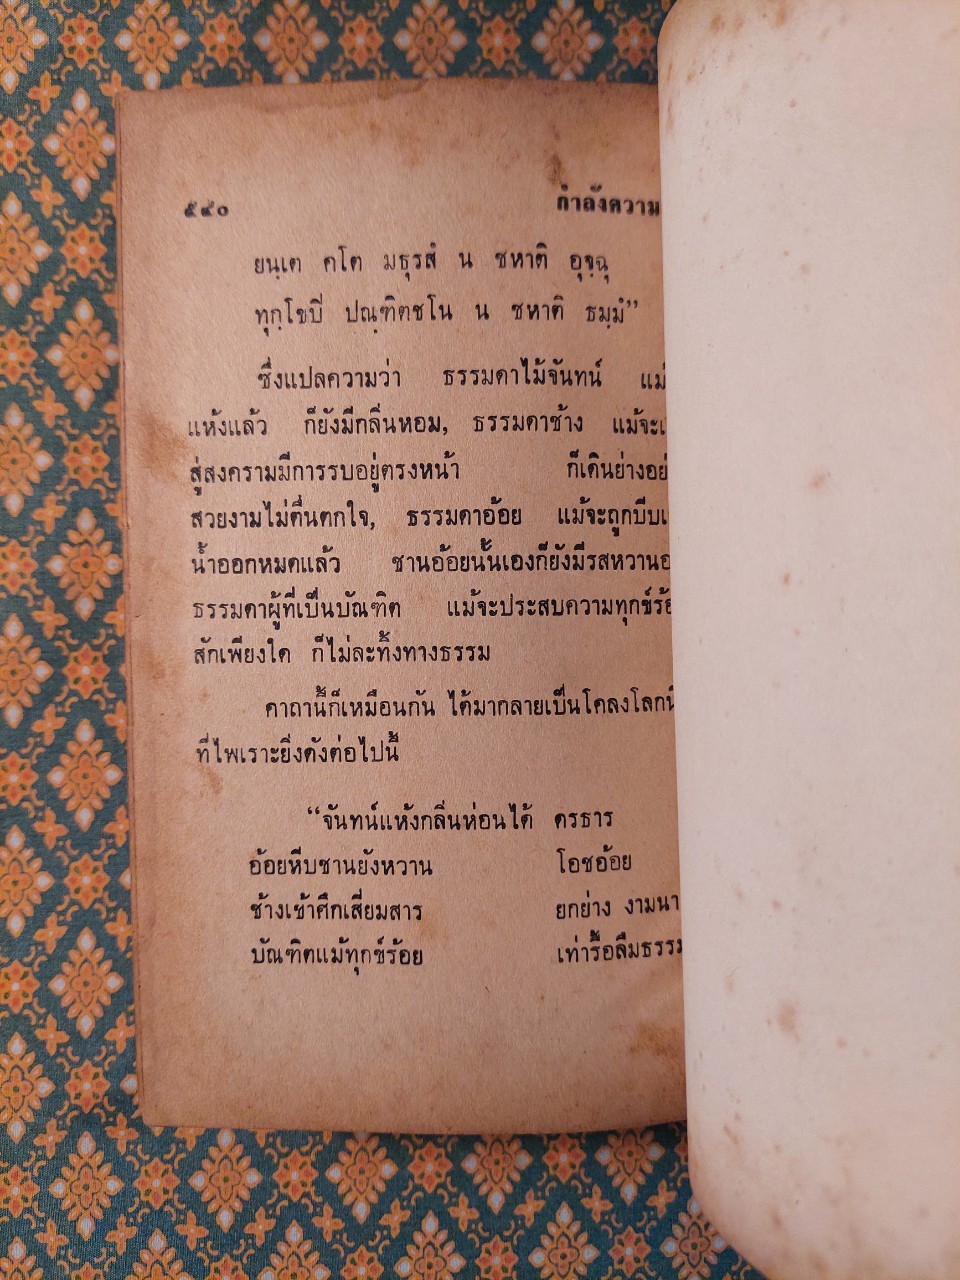 ๕๔๐ กำลังความ
ยนฺเต คโต มธุรสํ น ชหาติ อุจฺฉุ
ทุกฺโขปี ปณฺฑิตชโน น ชหาติ ธมฺมํ”
ซึ่งแปลความว่า ธรรมดาไม้จันทน์ แม้
แห้งแล้ว ก็ยังมีกลิ่นหอม, ธรรมดาช้าง แม้จะ
สู่สงครามมีการรบอยู่ตรงหน้า ก็เดินย่าง
สวยงามไม่ตื่นตกใจ, ธรรมดาอ้อย แม้จะถูกบีบ
น้ำออกหมดแล้ว ชานอ้อยนั้นเองก็ยังมีรสหวาน
ธรรมดาผู้ที่เป็นบัณฑิต แม้จะประสบความทุกข์
สักเพียงใด ก็ไม่ละทิ้งทางธรรม
คาถานี้ก็เหมือนกัน ได้มากลายเป็นโคลงโลกนิ
ที่ไพเราะยิ่งดังต่อไปนี้
“จันทน์แห้งกลิ่นห่อนได้ ดรธาร
อ้อยหีบชานยังหวาน โอชอ้อย
ช้างเข้าศึกเสี่ยมสาร ยกย่าง งามนา
บัณฑิตแม้ทุกข์ร้อย เท่ารื้อลืมธรรม